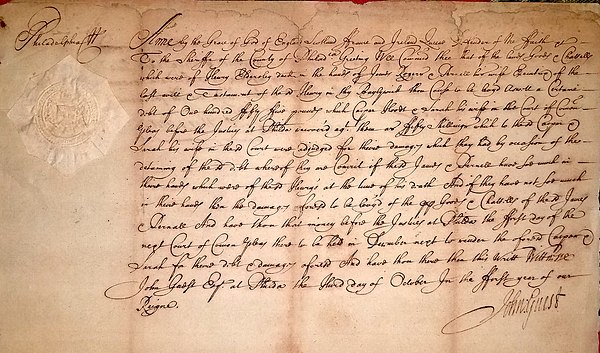 Philadelphia ss
Anne by the Grace of God of England Scotland France and Ireland Queen Defender of the Faith &c
To the Sheriffe of the County of Philadia Greeting Wee Comand thee that of the Lands Goods & Chattells
which were of Henry late in the hands of James & his wife Executrix of the
last will & Testament of the said Henry in thy Bayliwick thou Cause to be levyd as well a certaine
debt of One hundred fifty five pounds which Casper Hoodt & Sarah his wife in the Court of Comon
pleas before the Justices at Philadia recovered agt them as fifty shillings which to the said Casper &
Sarah his wife in the said Court were adjudged for their damages which they had by occasion of the
detaining of the sd debt whereof they are Convict if the said James & have soe much in
their hands which were of the said Henry's at the time of his death And if they have not soe much
in their hands then the damages aforesd to be levyd of the Goods & Chattells of the said James
& And have thou their money before the Justices at Philadia the first day of the
next Court of Comon pleas there to be held in December next to render the aforesd Casper &
Sarah for their debt & damages aforesd And have thou there then this Writt Wittness
John Guest Esqr at Philadia the third day of October In the first year of our
Reigne.
John Guest